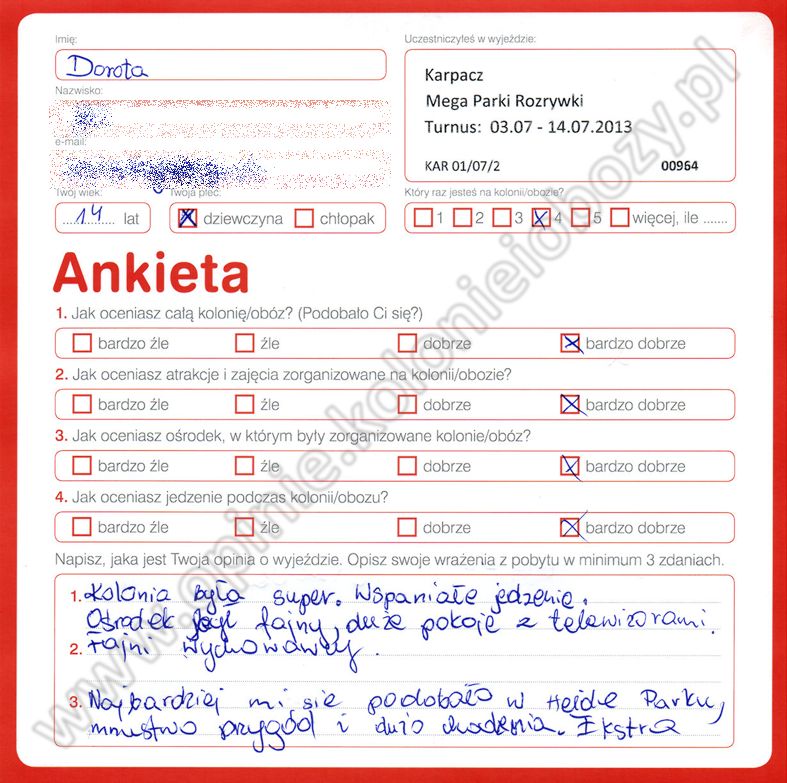 Imię:
Dorota
Uczestniczyłeś w wyjeździe:
Karpacz
Mega Parki Rozrywki
Turnus: 03.07 - 14.07.2013
KAR 01/07/2 00964
Nazwisko:
e-mail:
Twój wiek:
14 lat
Twoja płeć:
dziewczyna chłopak
Który raz jesteś na kolonii/obozie?
1 2 3 4 5 więcej, ile .......
Ankieta
1. Jak oceniasz całą kolonię/obóz? (Podobało Ci się?)
bardzo źle źle dobrze bardzo dobrze
2. Jak oceniasz atrakcje i zajęcia zorganizowane na kolonii/obozie?
bardzo źle źle dobrze bardzo dobrze
3. Jak oceniasz ośrodek, w którym były zorganizowane kolonie/obóz?
bardzo źle źle dobrze bardzo dobrze
4. Jak oceniasz jedzenie podczas kolonii/obozu?
bardzo źle źle dobrze bardzo dobrze
Napisz, jaka jest Twoja opinia o wyjeździe. Opisz swoje wrażenia z pobytu w minimum 3 zdaniach.
1. Kolonia była super. Wspaniałe jedzenie.
Ośrodek był fajny, duże pokoje z telewizorami.
2. Fajni wychowawcy.
3. Najbardziej mi się podobało w Heide Parku,
mnóstwo przygód i dużo chodzenia. Ekstra
www.opinie.kolonieiobozy.pl